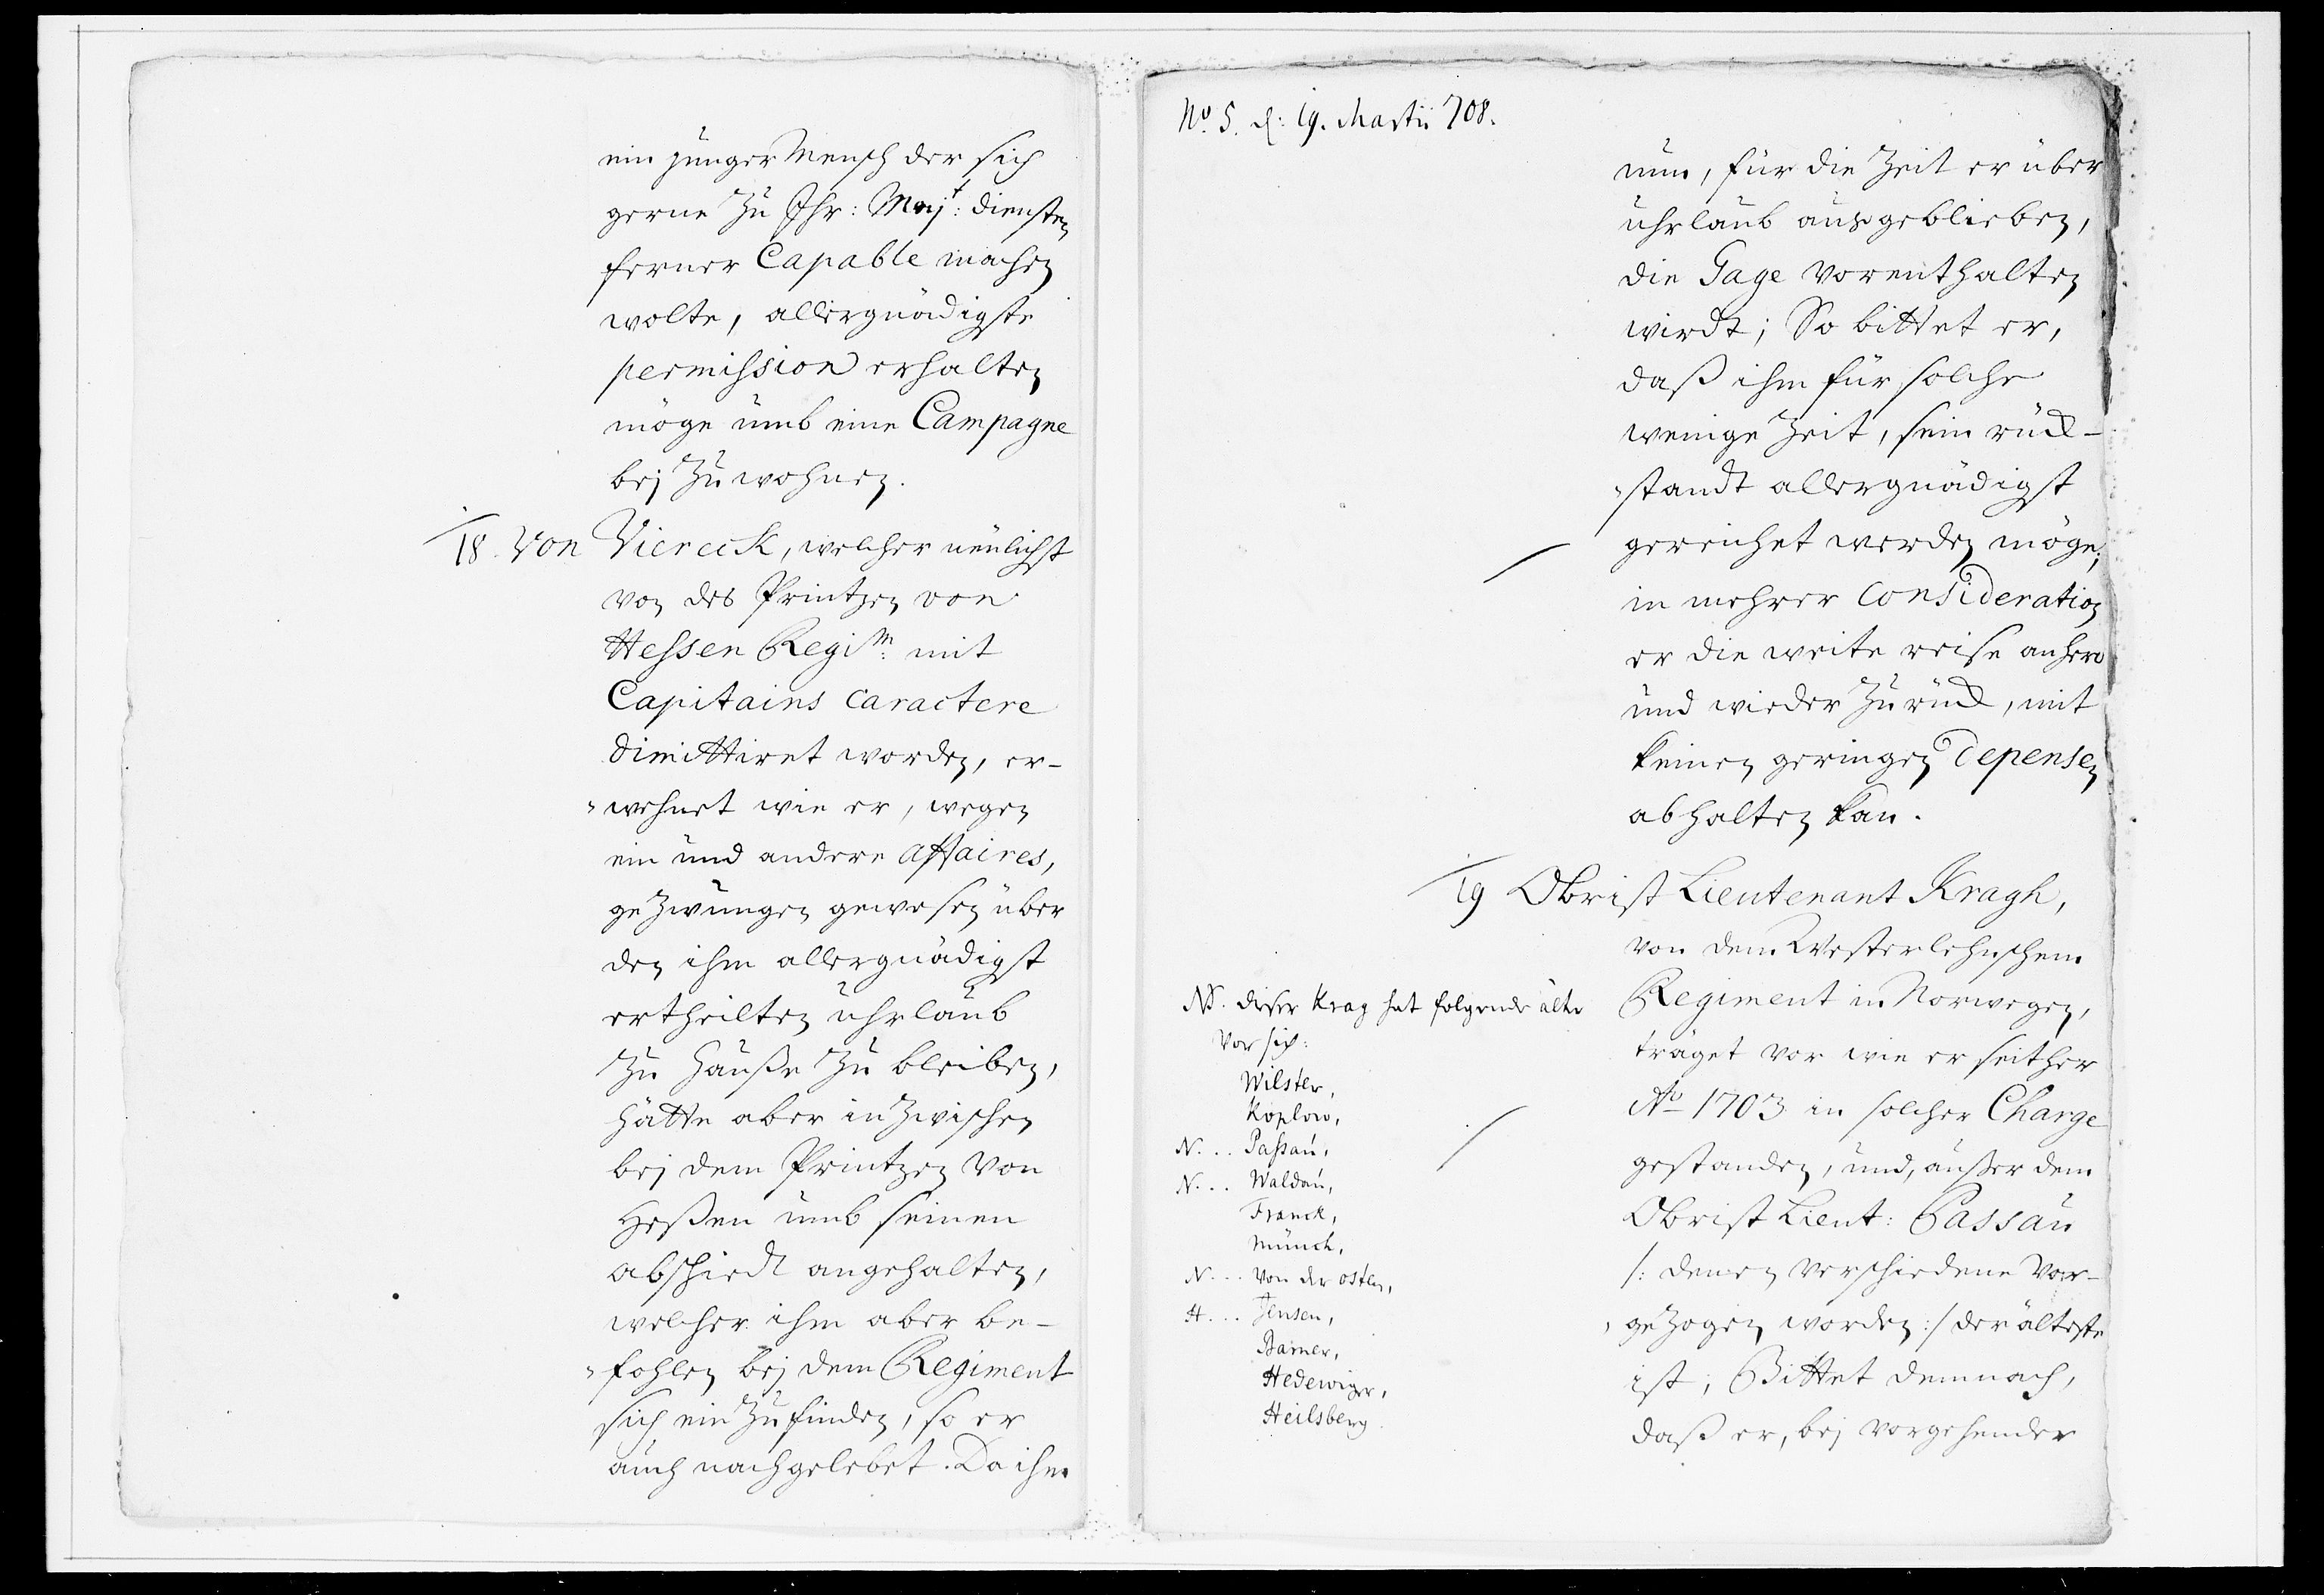 ein junger Mensch der sich
gerne zu Ihr: Maj:t diensten
ferner Capable machen
wolte, allergnädigste
permission erhalten
möge umb eine Campagne
bej zu wohnen.
18. Von Viereck, welcher neulichst
von des Printzen von
Hessen Regim: mit
Capitains caractere
dimittiret worden, er-
wehnet wie er, wegen
ein und andere affaires,
gezwungen gewesen über
den ihm allergnädigst
ertheilten uhrlaub
zu Hauße zu bleiben,
hätte aber inzwischen
bej dem Printzen von
Heßen umb seinen
abschiedt angehalten,
welcher ihm aber be-
fohlen bej dem Regiment
sich ein zu finden, so er
auch nachgelebet. Da ihm
No. 5. d: 19. Martii 708.
nun, für die Zeit er über
uhrlaub ausgeblieben,
die Gage vorenthalten
wirdt; So bittet er,
daß ihm für solche
wenige Zeit, sein rück-
standt allergnädigst
gereichet werden möge;
in mehrer consideration
er die weite reise anhero
und wieder zurück, mit
keinen geringen depensen
abhalten kan.
19 Obrist Lieutenant Kragh,
von dem Westerlehnschem
Regiment in Norwegen,
träget vor wie er seither
Ao 1703 in solcher Charge
gestanden, und, außer dem
Obrist Lieut: Passau
/: denen verschiedene vor-
gezogen worden :/ der älteste
ist; Bittet demnach,
daß er, bej vorgehender
NB. dieser Krag hat folgende älte
vor sich:
Wilster,
Koplow,
N... Passau,
N... Waldau,
Franck,
Münch,
N... Von der Osten,
H... Jensen,
Barner,
Hedewiger,
Heilsberg.